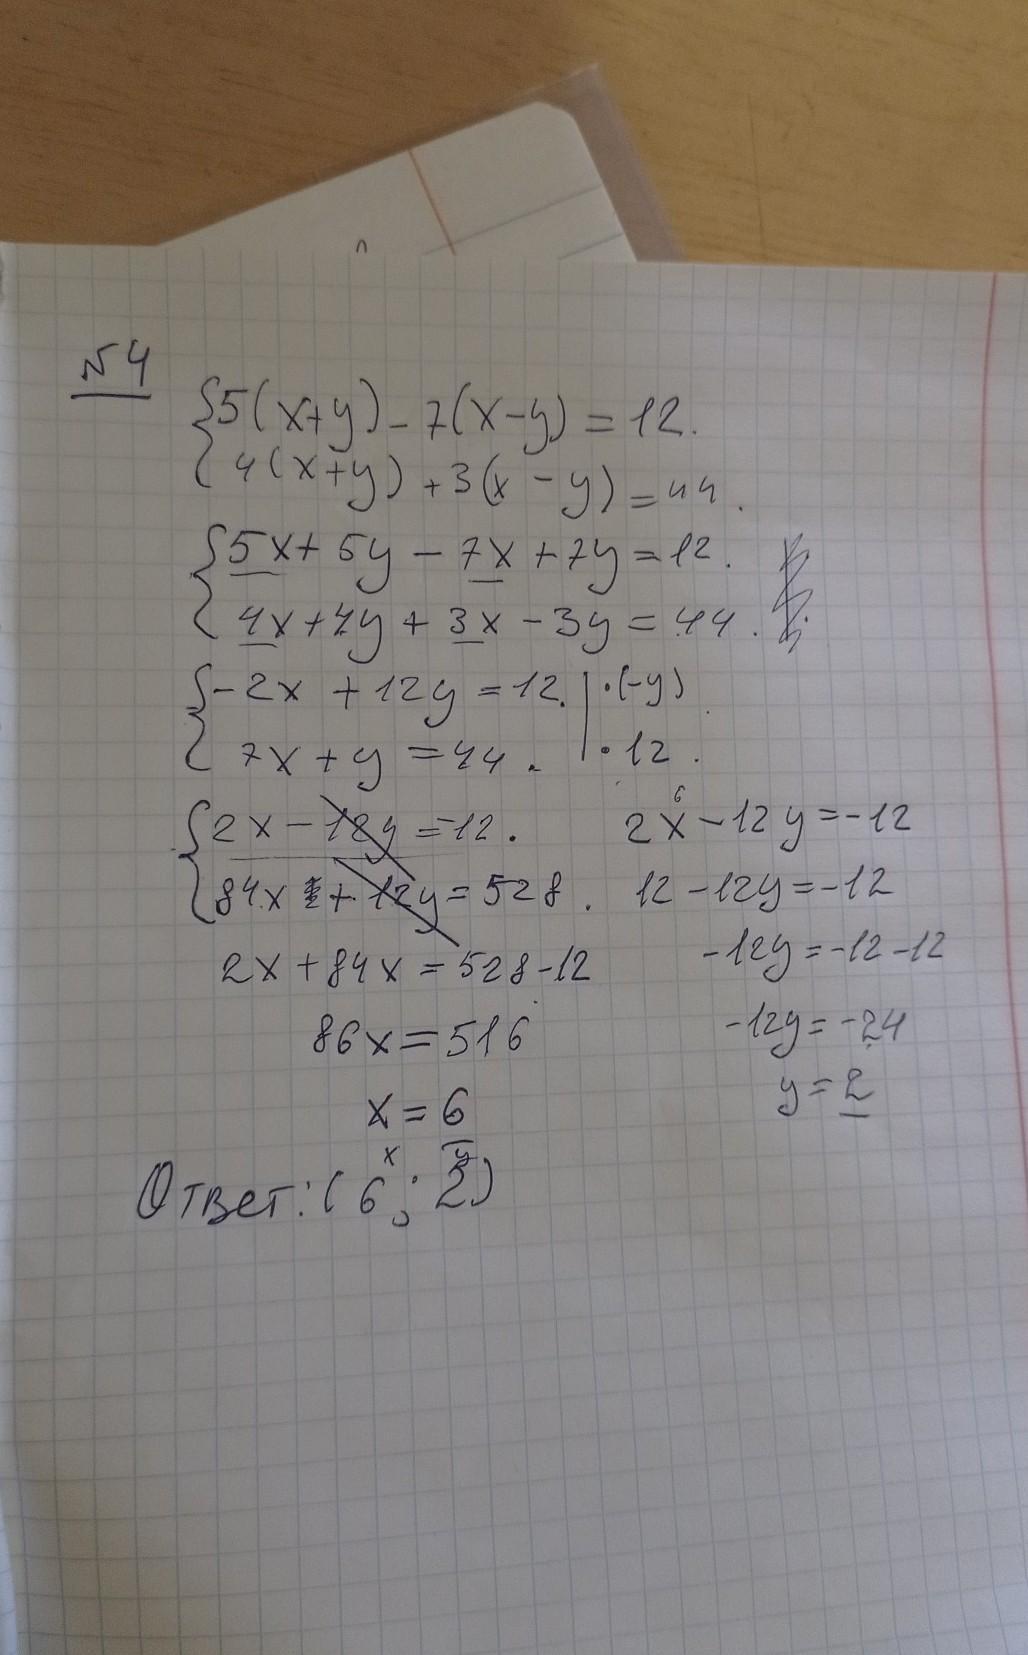 №4
{5(x+y) - 7(x-y) = 12.
4(x+y) + 3(x-y) = 44.
{5x + 5y - 7x + 7y = 12.
4x + 4y + 3x - 3y = 44.
{-2x + 12y = 12. | ·(-y)
7x + y = 44. | ·12.
{2x - 12y = -12.
84x + 12y = 528.
2x + 84x = 528 - 12
86x = 516
x = 6
6
2x - 12y = -12
12 - 12y = -12
-12y = -12 - 12
-12y = -24
y = 2
x y
Ответ: (6; 2)